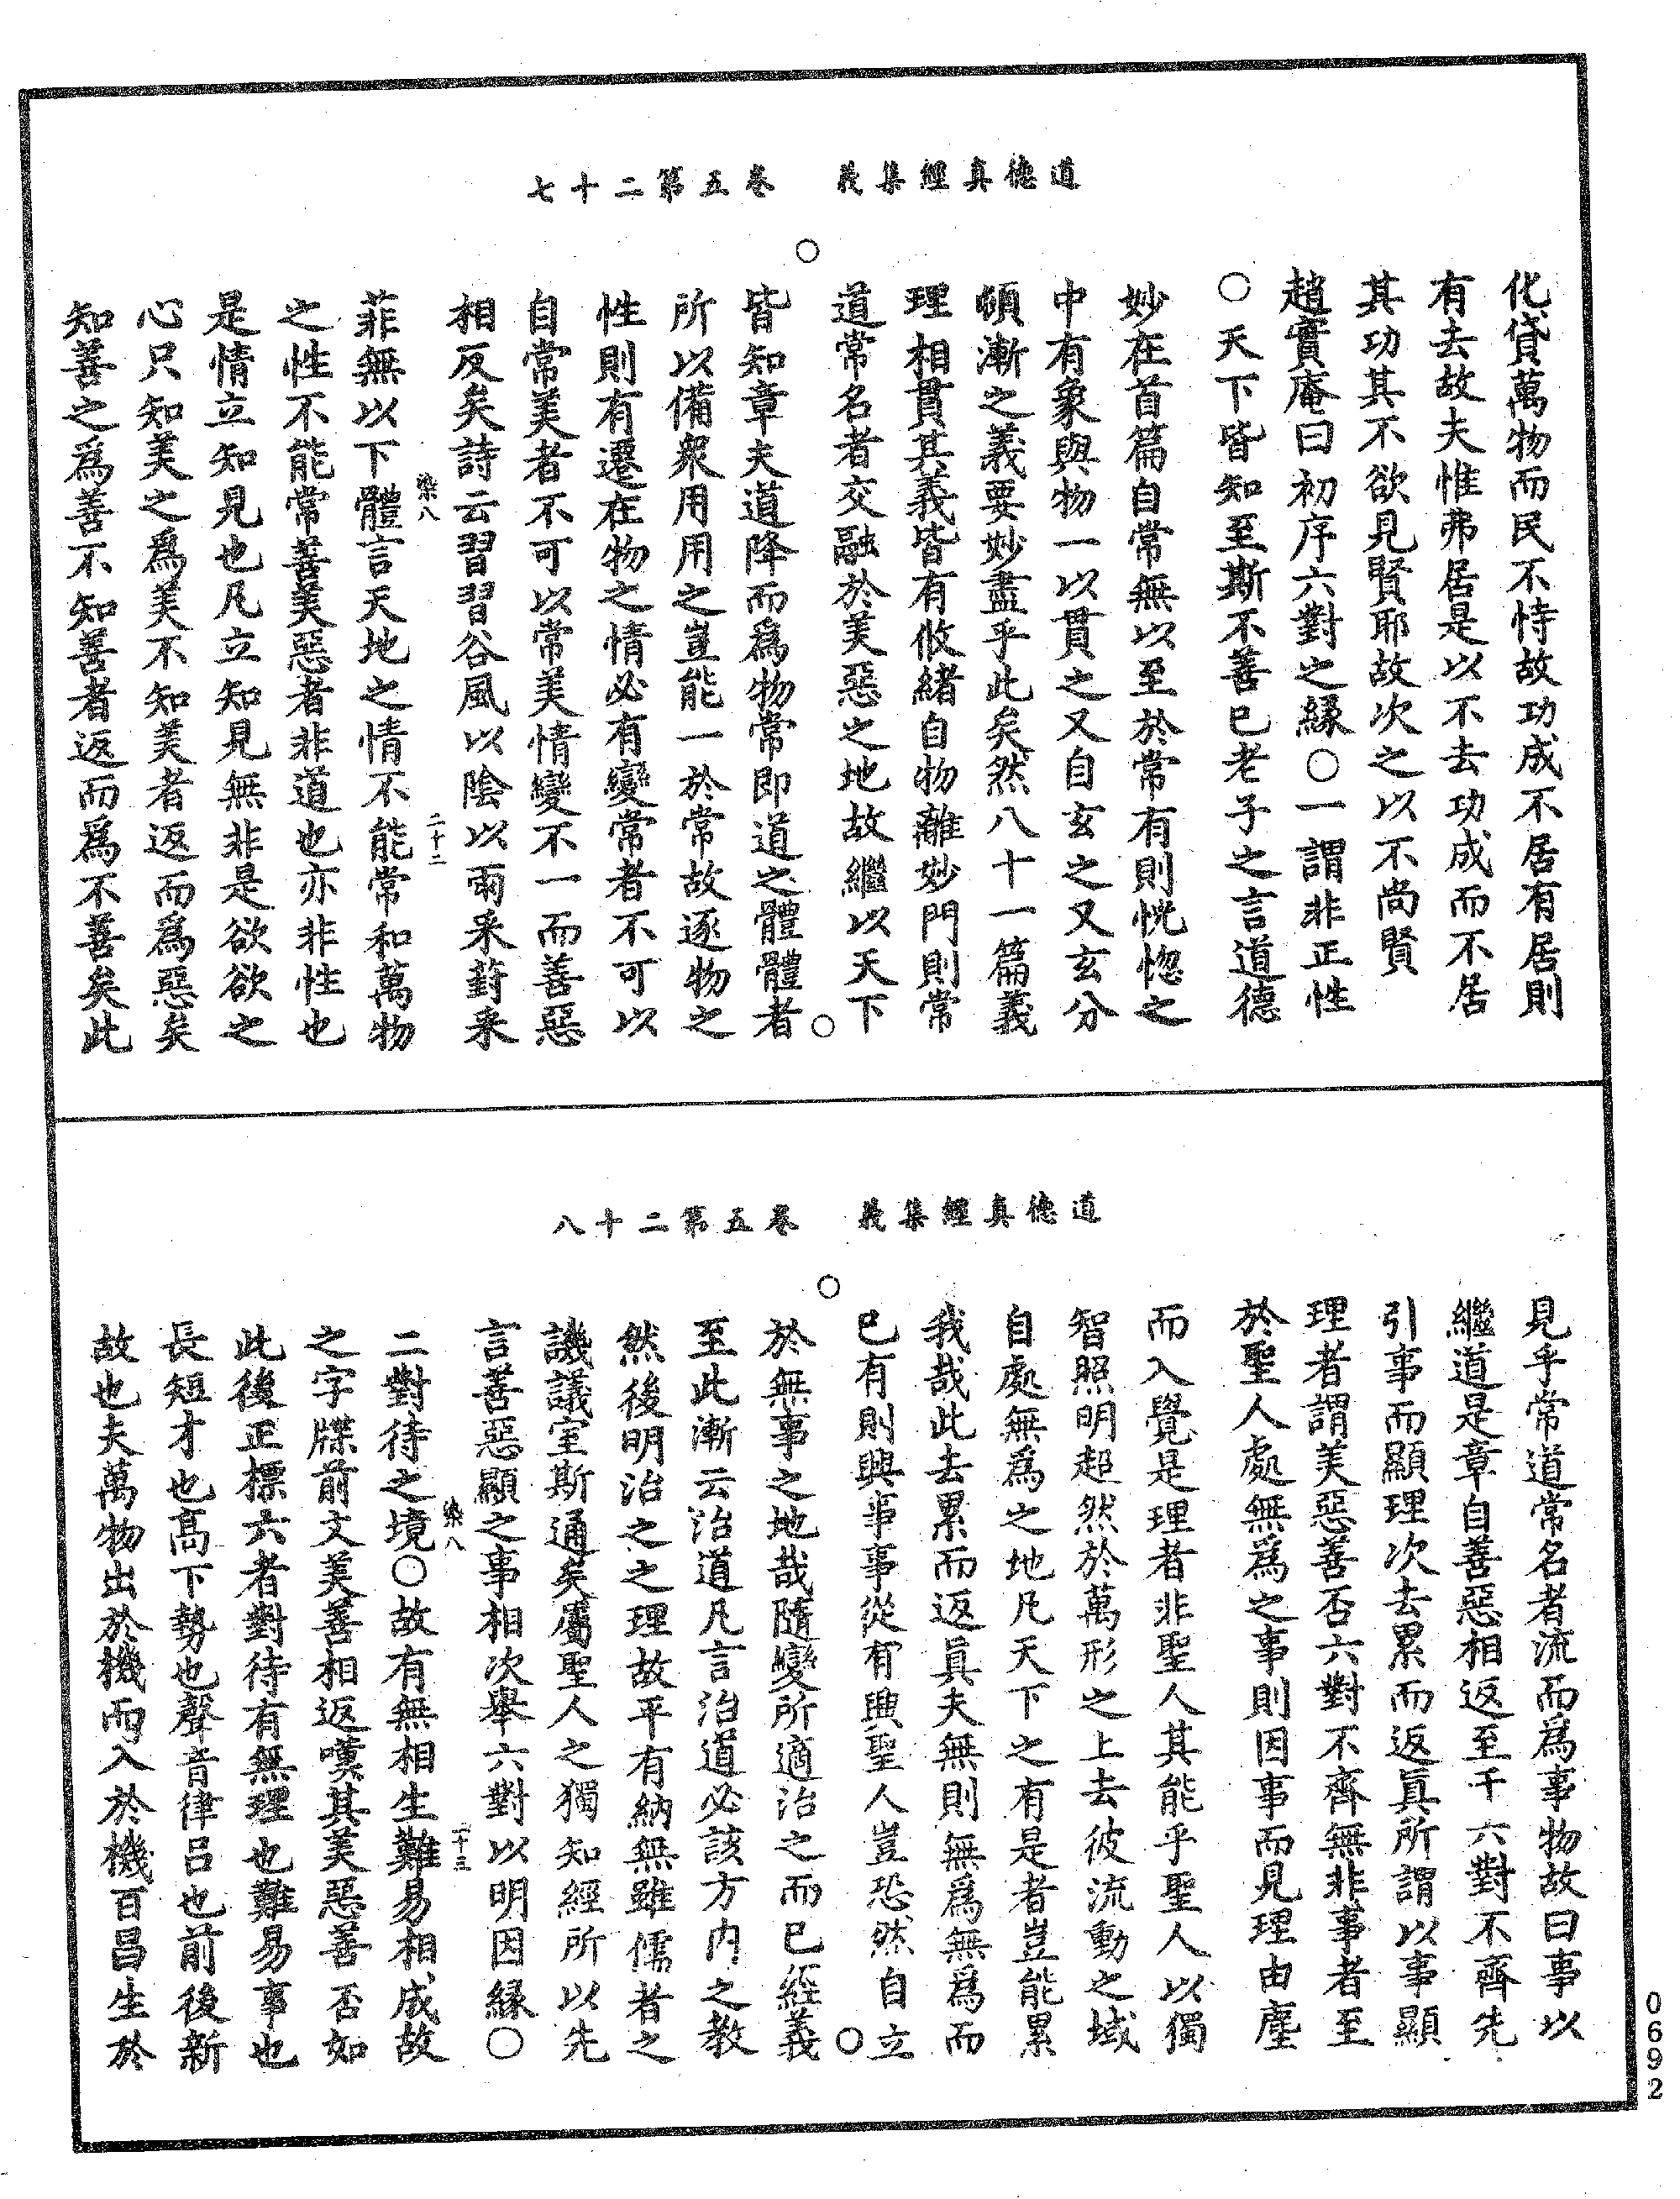 道德真經集義　卷五第二十七
化貸萬物而民不恃故功成不居有居則
有去故夫惟弗居是以不去功成而不居
其功其不欲見賢耶故次之以不尚賢
趙實庵曰初序六對之縁○一謂非正性
○天下皆知至斯不善已老子之言道德
妙在首篇自常無以至於常有則恍惚之
中有象與物一以貫之又自玄之又玄分
頓漸之義要妙盡乎此矣然八十一篇義
理相貫其義皆有攸緒自物離妙門則常
道常名者交融於美惡之地故繼以天下
皆知章夫道降而為物常即道之體體者
所以備衆用用之豈能一於常故逐物之
性則有遷在物之情必有變常者不可以
自常美者不可以常美情變不一而善惡
相反矣詩云習習谷風以陰以雨采葑采
染八　二十二
菲無以下體言天地之情不能常和萬物
之性不能常善美惡者非道也亦非性也
是情立知見也凡立知見無非是欲欲之
心只知美之為美不知美者返而為惡矣
知善之為善不知善者返而為不善矣此
道德真經集義　卷五第二十八
見乎常道常名者流而為事物故曰事以
繼道是章自善惡相返至千六對不齊先
引事而顯理次去累而返眞所謂以事顯
理者謂美惡善否六對不齊無非事者至
於聖人處無為之事則因事而見理由塵
而入覺是理者非聖人其能乎聖人以獨
智照明超然於萬形之上去彼流動之域
自處無為之地凡天下之有是者豈能累
我哉此去累而返眞夫無則無為無為而
已有則興事事從有興聖人豈恐然自立
於無事之地哉隨變所適治之而已經義
至此漸云治道凡言治道必該方内之教
然後明治之之理故平有納無雖儒者之
譏議室斯通矣屬聖人之獨知經所以先
言善惡顯之事相次舉六對以明因縁○
染八　二十三
二對待之境○故有無相生難易相成故
之字牒前文美善相返嘆其美惡善否如
此後正標六者對待有無理也難易事也
長短才也高下勢也聲音律呂也前後新
故也夫萬物出於機而入於機百昌生於
0692